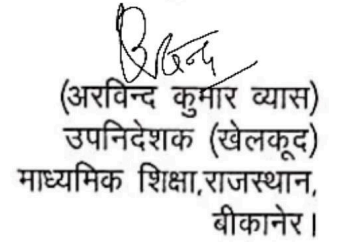 (अरविन्द कुमार व्यास)
उपनिदेशक (खेलकूद)
माध्यमिक शिक्षा,राजस्थान,
बीकानेर।